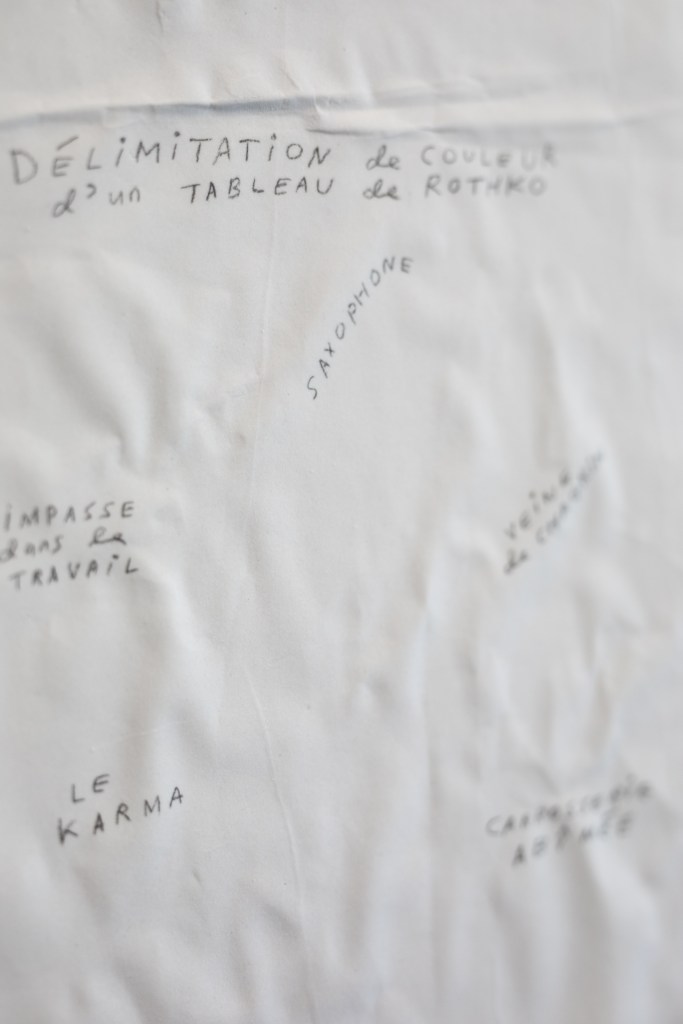 DÉLIMITATION de COULEUR
d'un TABLEAU de ROTHKO
SAXOPHONE
IMPASSE
dans le
TRAVAIL
VEINE
de
LE
KARMA